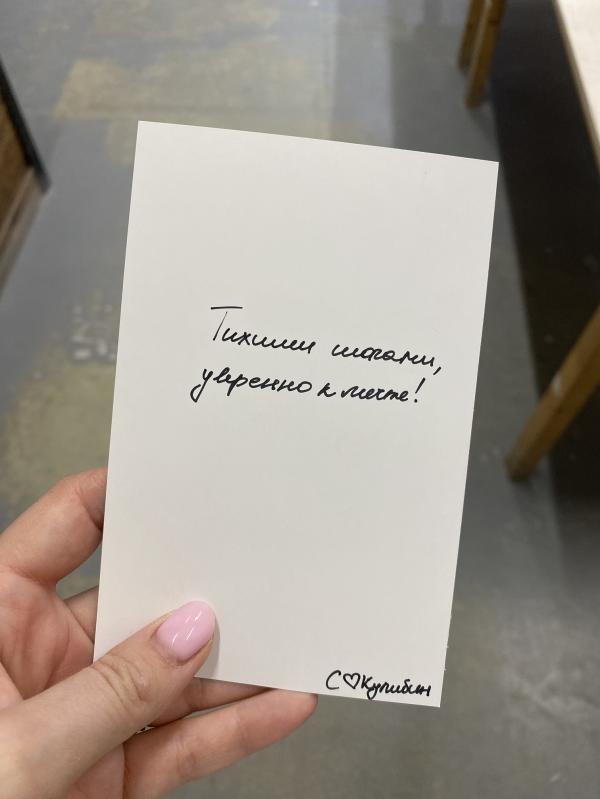 Тихими шагами,
уверенно к мечте!
С♡Кулибин